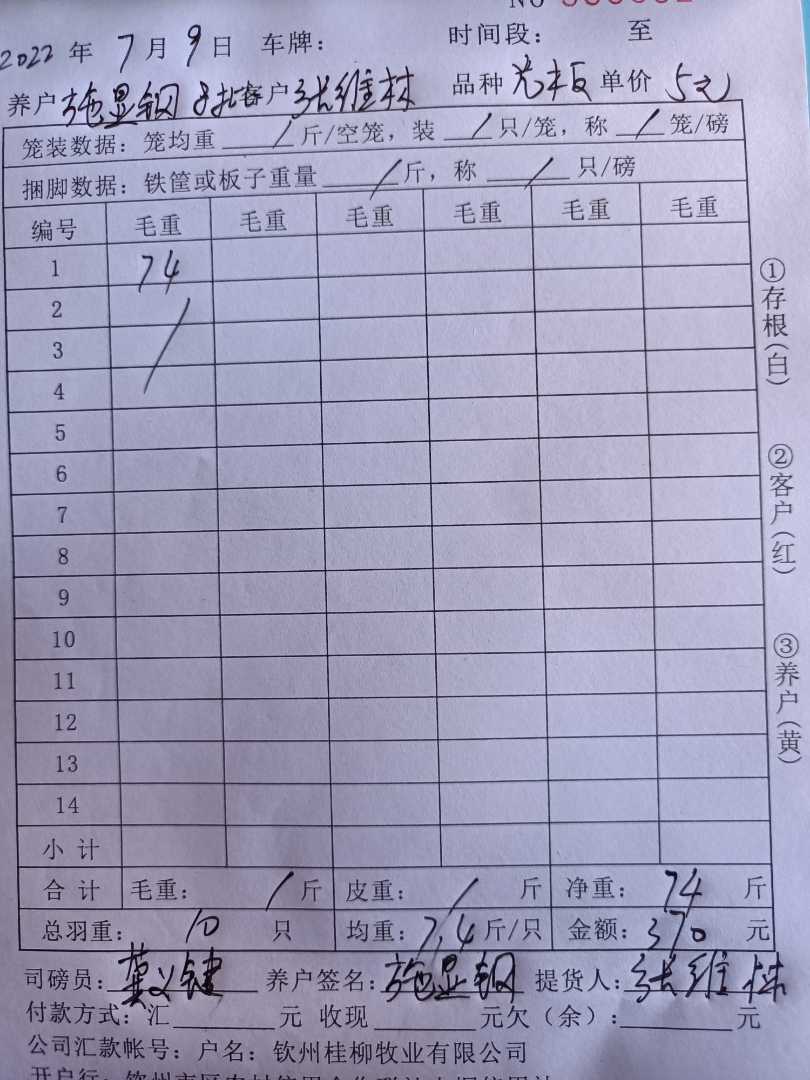 2022 年 7 月 9 日 车牌: 时间段: 至
养户 施显钢 客户 张维林 品种 单价 5元
笼装数据: 笼均重 / 斤/空笼, 装 / 只/笼, 称 / 笼/磅
捆脚数据: 铁筐或板子重量 / 斤, 称 / 只/磅
编号 毛重 毛重 毛重 毛重 毛重 毛重
1 74
2
3
4
5
6
7
8
9
10
11
12
13
14
小计
合计 毛重: / 斤 皮重: / 斤 净重: 74 斤
总羽重: 10 只 均重: 7.4 斤/只 金额: 370 元
司磅员: 莫义健 养户签名: 施显钢 提货人: 张维林
付款方式: 汇 元 收现 元欠(余): 元
公司汇款帐号: 户名: 钦州桂柳牧业有限公司
①存根(白)
②客户(红)
③养户(黄)